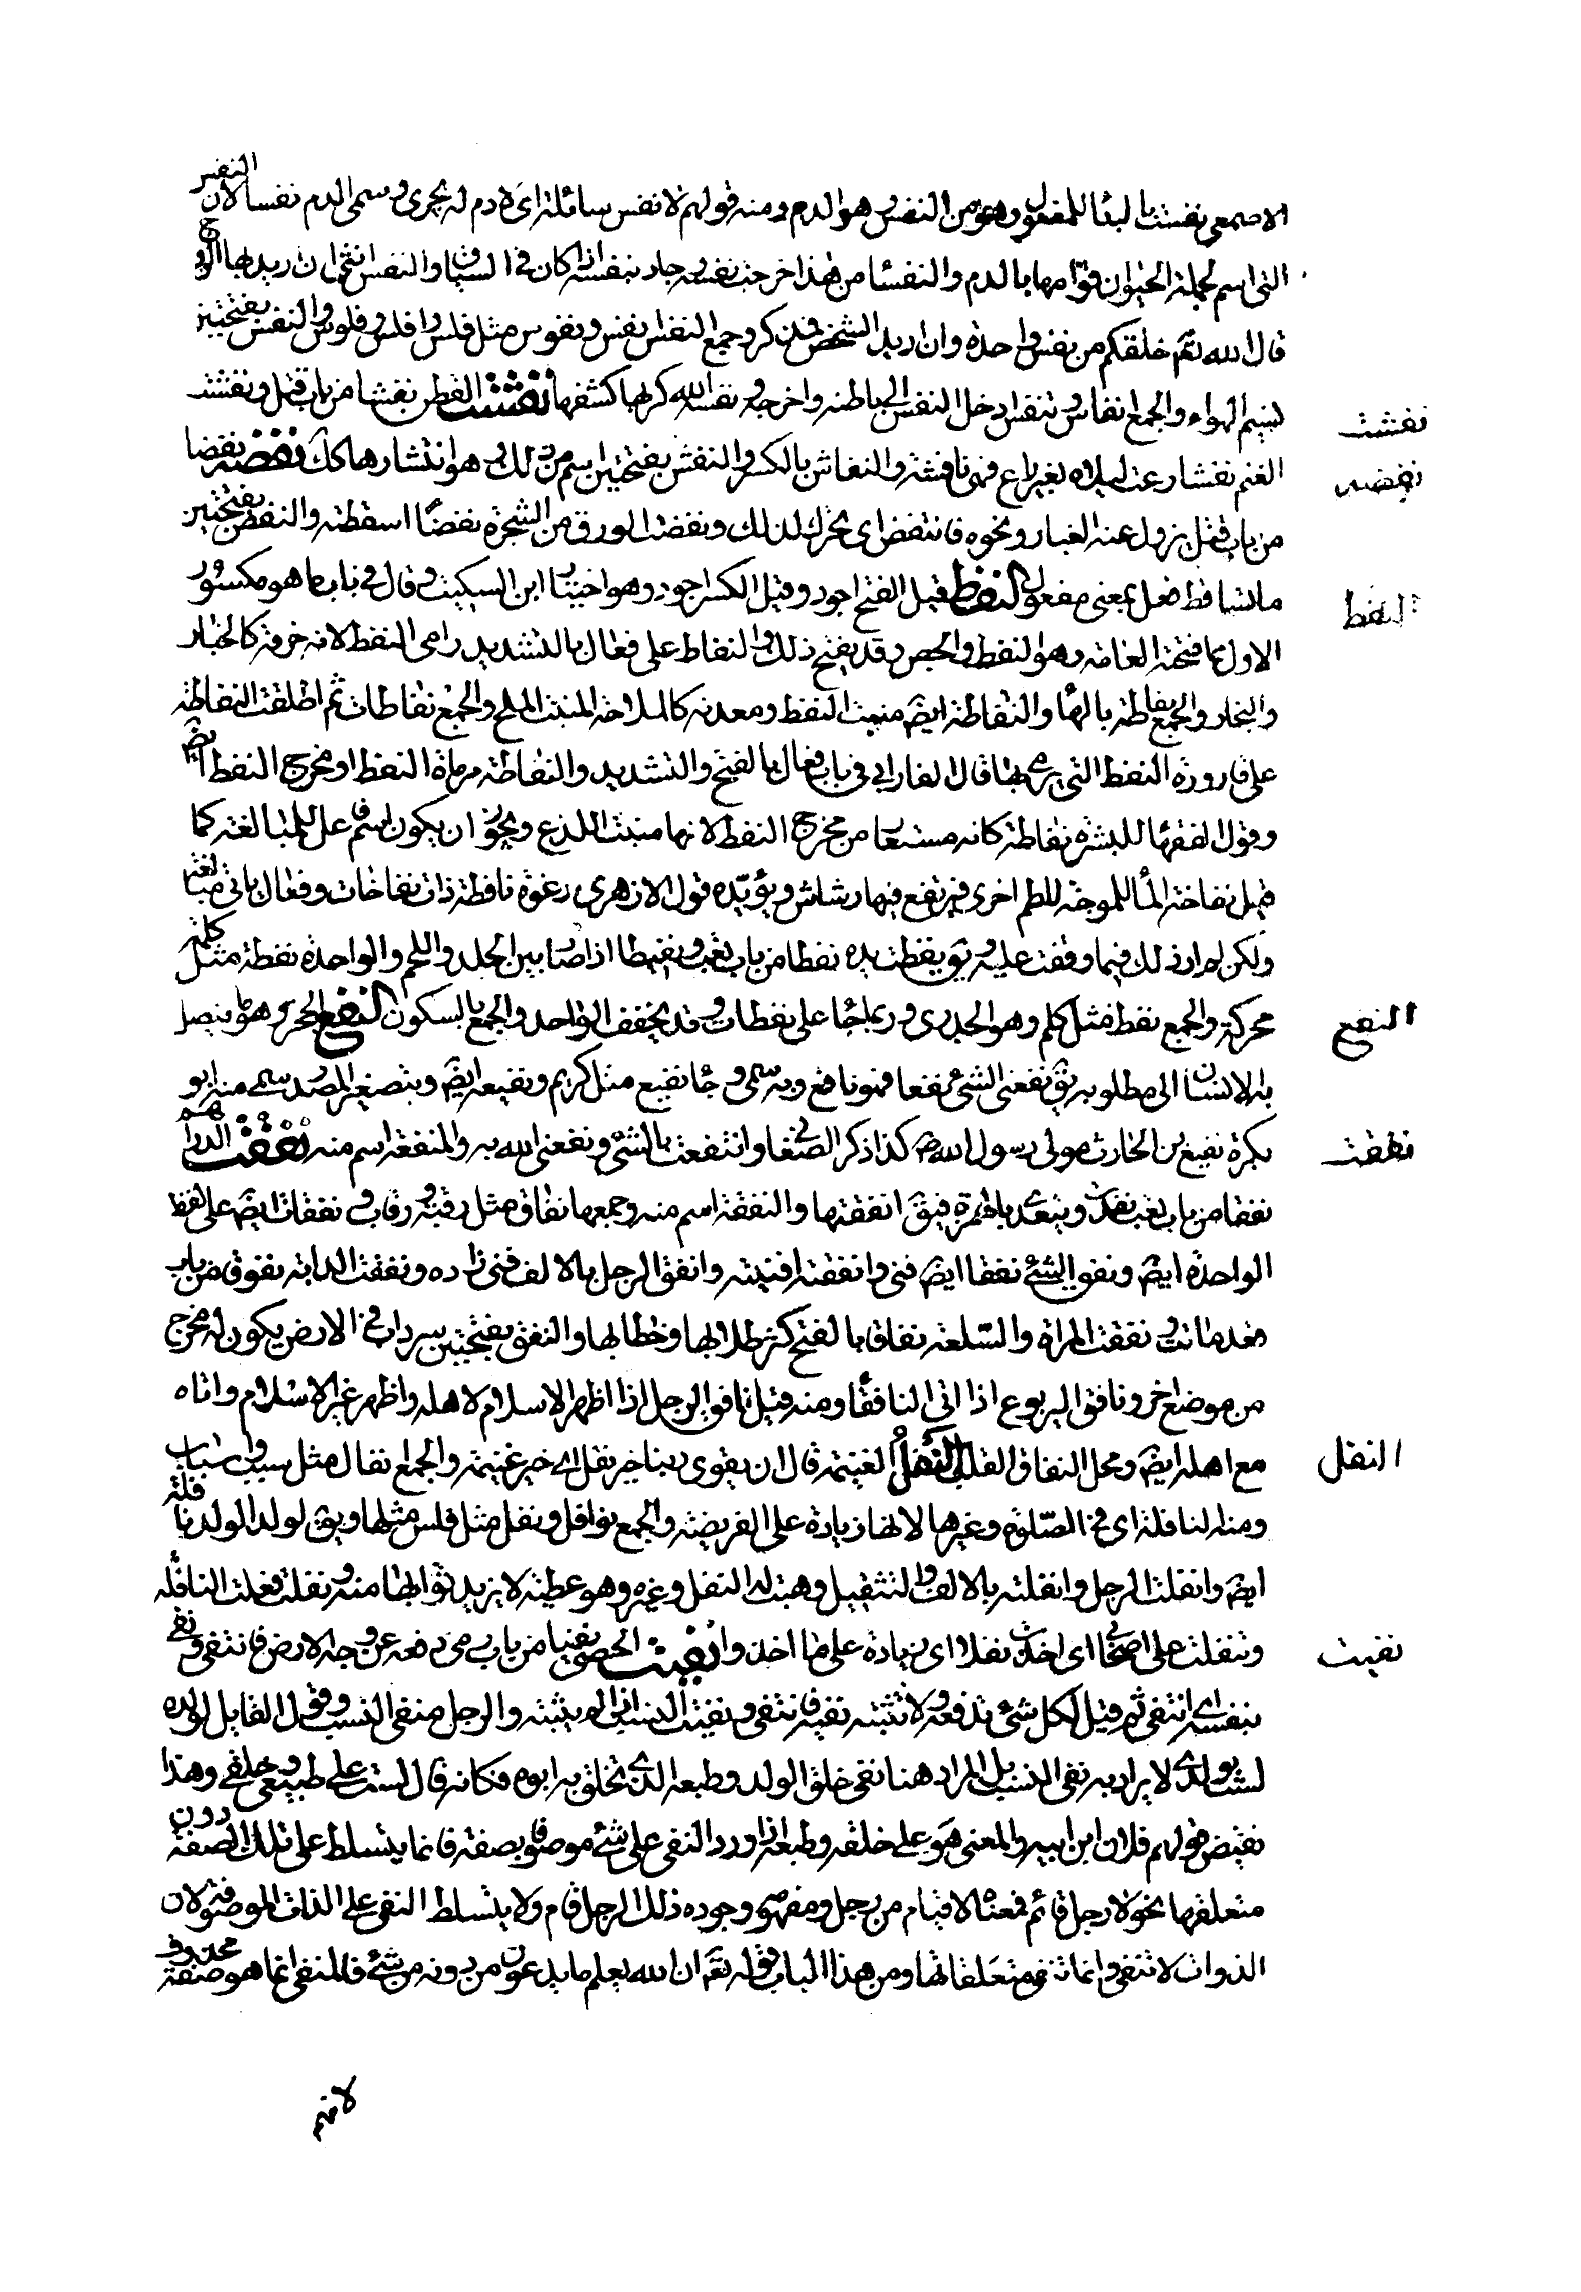 الاصمعى نفست بالبنا للمفعول وهو من النفس و هو الدم ومنه قولهم لا نفس سائلة اى لا دم له يجرى و سمى الدم نفسا لان النفس
التى اسم لجملة الحيوان قوامها بالدم والنفسا من هذا خرجت نفسه و جاد بنفسه اذا كان فى السياق والنفس انثى ان اريد بها الروح
قال الله تعم خلقكم من نفس واحدة وان اريد الشخص فمذكر و جمع النفس انفس و نفوس مثل فلس و افلس و فلوس والنفس بفتحتين
نسيم الهواء والجمع انفاس و تنفس دخل النفس الى باطنه واخرجه و نفس الله كربها كشفها نفشت القطن نفشا من باب قتل و نفشت
الغنم نفشا رعت ليلا بغير راع فهى نافشة والنفاش بالكسر والنفش بفتحتين اسم من ذلك و هو انتشارها كك نفضته نفضا
من باب قتل ليزول عنه الغبار ونحوه فانتفض اى تحرك لذلك ونفضت الورق من الشجرة نفضا اسقطته والنفض بفتحتين
ما تساقط فعل بمعنى مفعول النفط قيل الفتح اجود وقيل الكسر اجود وهو اختيار ابن السكيت و قال فى باب ما هو مكسور
الاول مما فتحته العامة وهو النفط والجص و قد يفتح ذلك والنفاط على فعال بالتشديد رامى النفط لانه حرفة كالخباز
والنجار والجمع نفاطة بالها والنفاطة ايضً منبت النفط ومعدنه كالملاحة لمنبت الملح والجمع نفاطات ثم اطلقت النفاطة
على قارورة النفط التى يرمى بها قال الفارابى فى باب فعال بالفتح والتشديد والنفاطة مرماة النفط او مخرج النفط ايضً
وقول الفقها للبثرة نفاطة كانه مستعار من مخرج النفط لانها منبت اللذع و يجوز ان يكون اسم فاعل للمبالغة كما
قيل نفاخة الما للموجة تلطم اخرى فيرتفع فيها رشاش ويؤيده قول الازهرى رغوة نافطة ذات نفاخات وفعال ياتى مبالغة
ولكن لم ار ذلك فيما وقفت عليه و يق نفطت يده نفطا من باب تعب و نفيطا اذا صار بين الجلد واللحم والواحدة نفطة مثل كلمة
محركة والجمع نفط مثل كلم وهو الجدرى و ربما جا على نفطات و قد يخفف الواحد والجمع بالسكون النفع الخير و هو ما يتوصل
به الانسان الى مطلوبه يق نفعنى الشئ نفعا فهو نافع و به سمى و جا نفيع مثل كريم و نفيعة ايضً وبتصغير المصدر سمى منه ابو
بكرة نفيع بن الحارث مولى رسول الله ص كذا ذكر الصغا وانتفعت بالشئ ونفعنى الله به والمنفعة اسم منه نفقت الدراهم
نفقا من باب تعب نفدت ويتعدى بالهمزة فيق انفقتها والنفقة اسم منه وجمعها نفاق مثل رقبة و رقاب و نفقات ايضً على لفظ
الواحدة ايضً ونفق الشئ نفقا ايضً فنى وانفقته افنيته وانفق الرجل بالالف فنى زاده ونفقت الدابة نفوقا من باب
قعد ماتت و نفقت المراة والسلعة نفاقا بالفتح كثر طلابها وخطابها والنفق بفتحتين سرداب فى الارض يكون له مخرج
من موضع اخر ونافق اليربوع اذا اتى النافقا ومنه قيل نافق الرجل اذا اظهر الاسلام لاهله واظهر غير الاسلام واتاه
مع اهله ايضً ومحل النفاق القلب النفل الغنيمة قال ان تقوى ربنا خير نفل اى خير غنيمة والجمع انفال مثل سبب و اسباب
ومنه النافلة اى فى الصلوة وغيرها لانها زيادة على الفريضة والجمع نوافل و نفل مثل فلس مثلها ويق لولد الولد نافلة
ايضً وانفلت الرجل و انفلته بالالف والتثقيل وهبت له النفل وغيره وهو عطية لا يزيد ثوابها منه و نفلت فعلت النافلة
وتنفلت على اصحابى اى اخذت نفلا اى زيادة على ما اخذوا نفيت الحصى نفيا من باب رمى دفعه عن وجه الارض فانتفى و نفى
بنفسه اى انتفى ثم قيل لكل شئ تدفعه ولا تثبته نفيته فانتفى و نفيت النسب اذا لم يثبته والرجل منفى النسب و قول القايل لولده
لست بولدى لا يراد به نفى النسب بل المراد هنا نفى خلق الولد و طبعه الذى تخلق به ابوه فكانه قال لست على طبيعتى و خلقى وهذا
نقيض قولهم فلان ابن ابيه والمعنى هو على خلقه و طبعه اذا ورد النفى على شئ موصوف بصفة فانما يتسلط على تلك الصفة دون
متعلقها نحو لا رجل قائم فمعناه لا قيام من رجل ومفهومه وجود ذلك الرجل قام ولا يتسلط النفى على الذات الموصوفة لان
الذوات لا تنفى وانما تنفى متعلقاتها ومن هذا الباب قوله تعم ان الله يعلم ما يدعون من دونه من شئ فالمنفى انما هو صفة محذوفة
لانهم
نفشت
نفضته
النفط
النفع
نفقت
النفل
نفيت